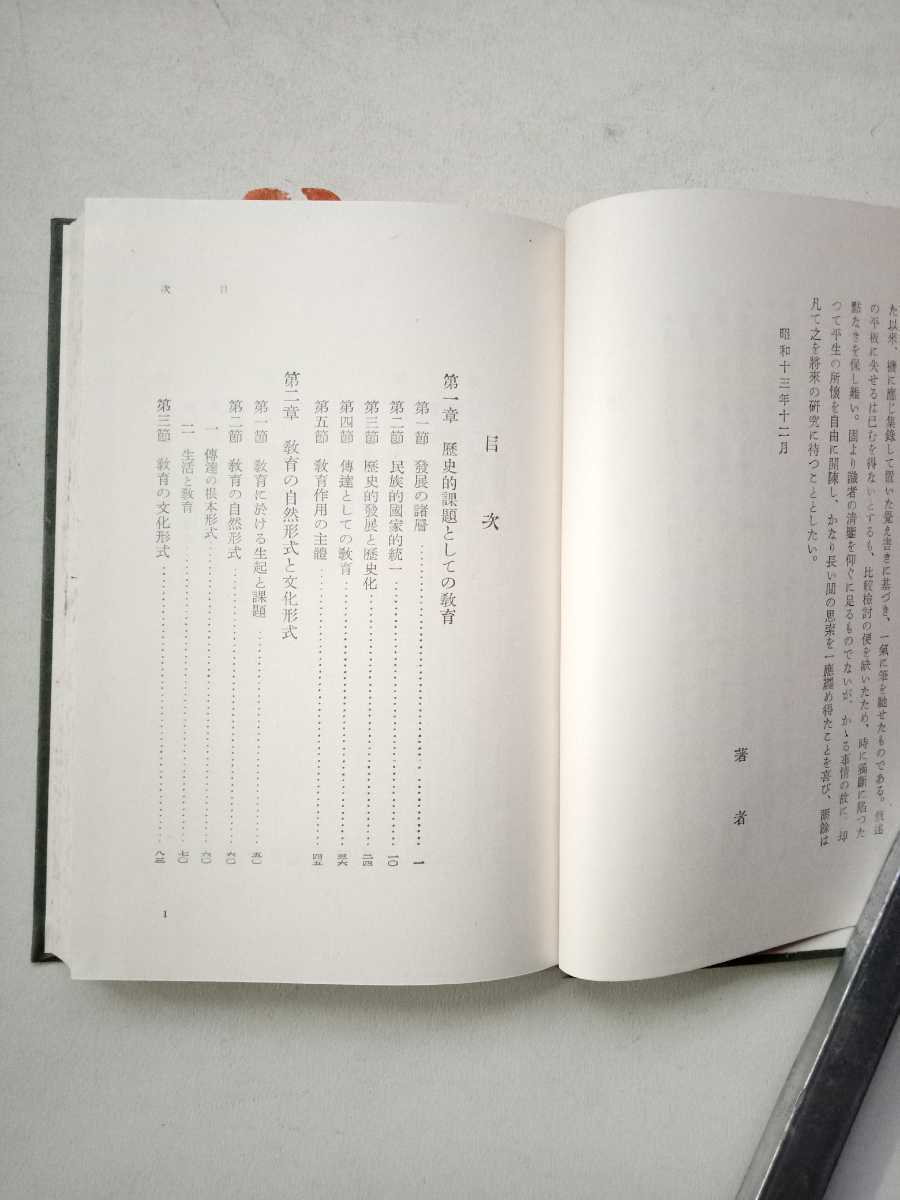 た以来、機に應じ集錄して置いた覺え書きに基づき、一氣に筆を馳せたものである。敍述
の平板に失せるは已むを得ないとするも、比較檢討の便を缺いたため、時に獨斷に陷つた
點なきを保し難い。固より識者の清鑒を仰ぐに足るものでないが、かゝる事情の故に、却
つて平生の所懷を自由に開陳し、かなり長い間の思索を一應纒め得たことを喜び、爾餘は
凡て之を將來の研究に待つこととしたい。
昭和十三年十二月
著者
目次
第一章 歷史的課題としての敎育
第一節 發展の諸層 一
第二節 民族的國家的統一 一〇
第三節 歷史的發展と歷史化 二四
第四節 傳達としての敎育 三六
第五節 敎育作用の主體 四五
第二章 敎育の自然形式と文化形式
第一節 敎育に於ける生起と課題 五〇
第二節 敎育の自然形式 六〇
一 傳達の根本形式 六〇
二 生活と敎育 七〇
第三節 敎育の文化形式 八三
目次
1